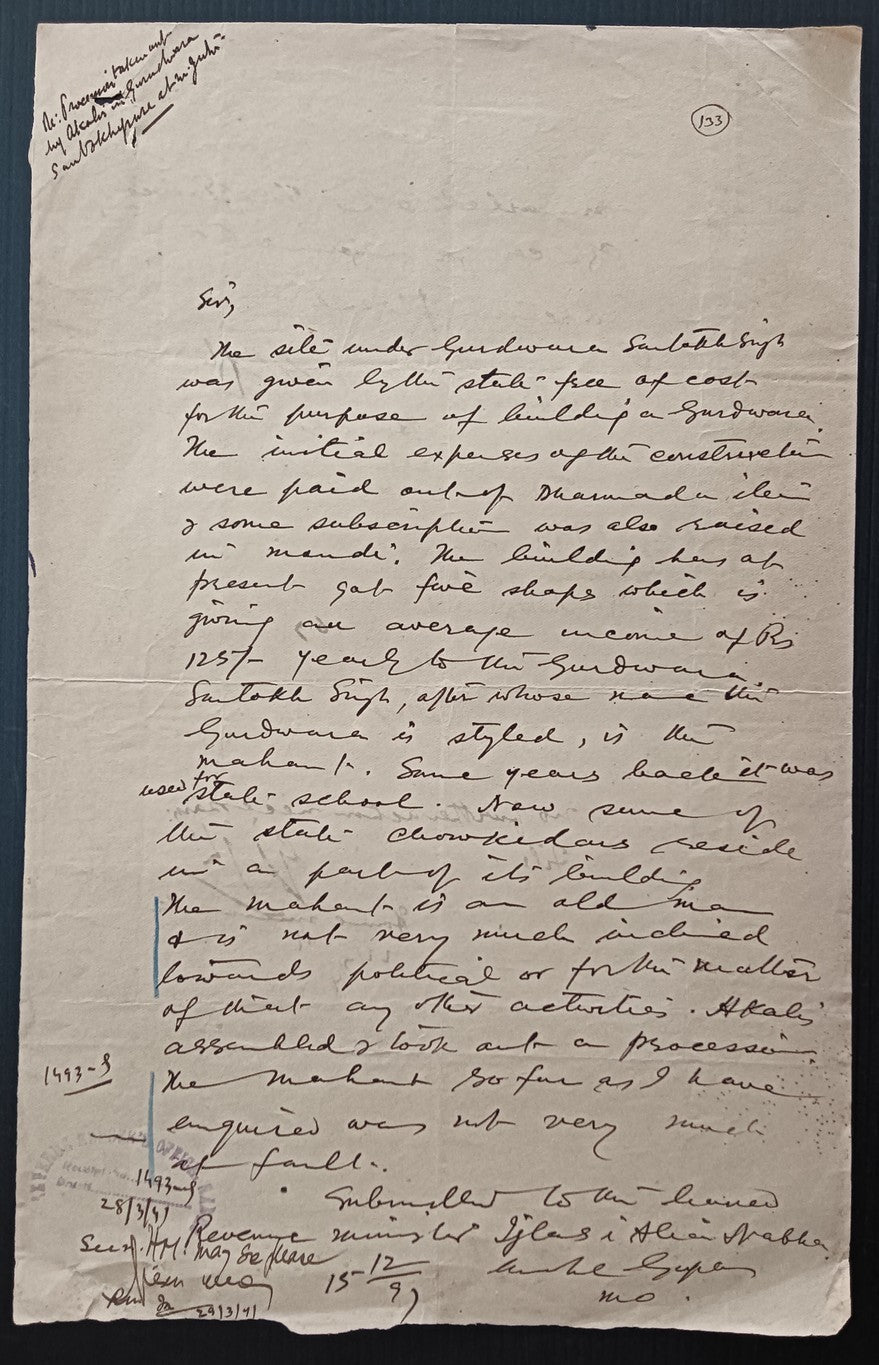 Re: Procession taken out
by Akalis in Gurudwara
Santokhpura at m. Jaito.
133
Sir,
The site under Gurdwara Santokh Singh
was given by the state free of cost
for the purpose of building a Gurdwara.
The initial expenses of the construction
were paid out of Dharmada item
& some subscription was also raised
in mandi. The building has at
present got five shops which is
giving an average income of Rs
125/- yearly to the Gurdwara
Santokh Singh, after whose name the
Gurdwara is styled, is the
mahant. Some years back it was
used for
state school. Now some of
the state chowkidars reside
in a part of its building
The mahant is an old man
& is not very much inclined
towards political or for the matter
of that any other activities. Akalis
assembled & took out a procession.
The mahant so far as I have
enquired was not very much
at fault.
1493-S
1493-S
28/3/41
Submitted to the
Revenue minister Ijlas i Alia Nabha
may see
15 12/97
Gupta
29/3/41